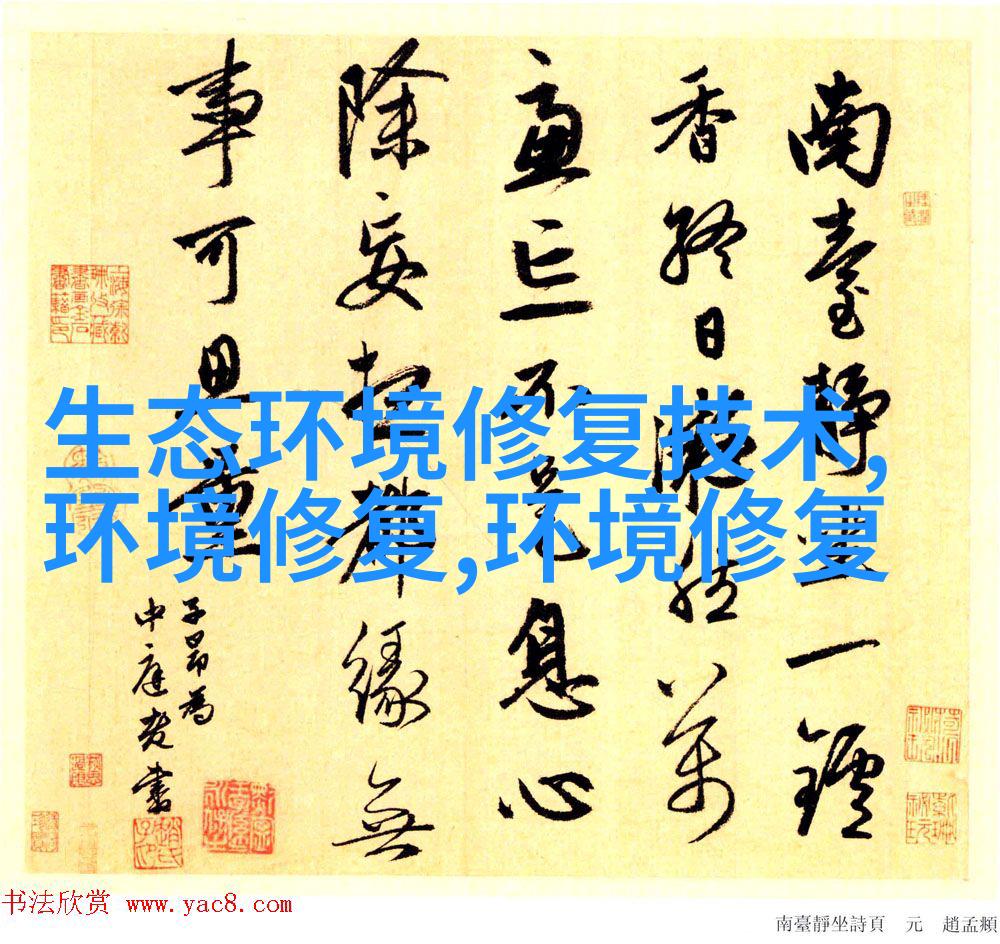 南臺靜坐一鑪
香終日凝然萬
慮亡不是息心
除妄想都緣無
事可思量
子昂為
中庭老書
生态环境修复技术,
环境修复,环境修复
书法欣赏 www.yac8.com
南臺靜坐詩頁 元 趙孟頫